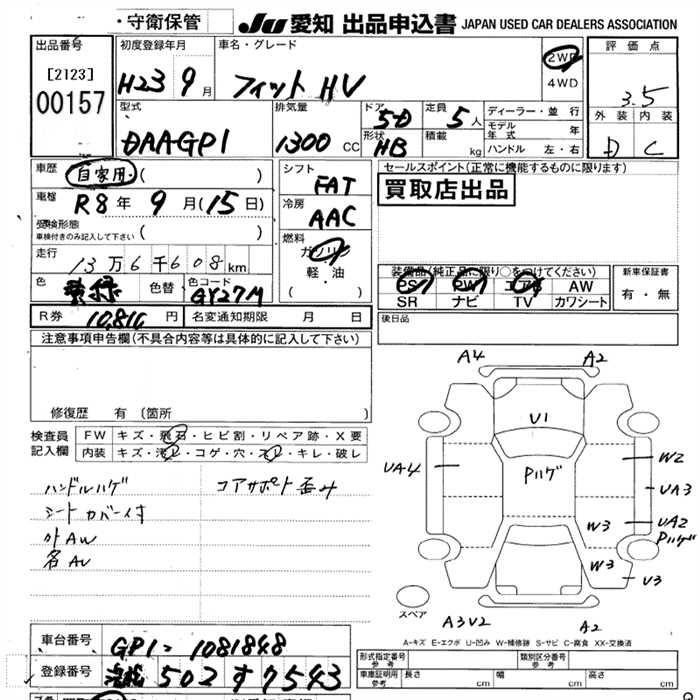 ・守衛保管 JU 愛知 出品申込書 JAPAN USED CAR DEALERS ASSOCIATION
出品番号 [2123] 00157
初度登録年月 H23 9月
車名・グレード フィット HV
2WD 4WD
評価点 3.5
外装 内装 D C
型式 DAAGP1
排気量 1300 CC
ドア 5D 形状 HB
定員 5人 積載 kg
ディーラー・並行
モデル年式 年
ハンドル 左・右
車歴 自家用・( )
車検 R8年 9月(15日)
受検形態 車検付きのみ記入して下さい ( )
走行 13万6千608km
色 色替 色コード GY27M
シフト FAT
冷房 AAC
燃料 ガソリン 軽・油 ( )
セールスポイント(正常に機能するものに限ります)
買取店出品
装備品(純正品に限り○をつけてください)
PS PW エアB AW
SR ナビ TV カワシート
新車保証書 有・無
R券 10,810 円 名変通知期限 月 日
後日品
注意事項申告欄(不具合内容等は具体的に記入して下さい)
修復歴 有 (箇所 )
検査員記入欄
FW キズ・飛石・ヒビ割・リペア跡・X要
内装 キズ・汚レ・コゲ・穴・スレ・キレ・破レ
ハンドルハゲ コアサポート歪み
シートカバー付
外AW
A4 A2
U1
Pハゲ
UA4 W2
UA3
W3 UA2
Pハゲ
W3
U3
スペア
A3U2 A2
A-キズ E-エクボ U-凹み W-補修跡 S-サビ C-腐食 XX-交換済
車台番号 GP1-1081848
登録番号 502す7543
形式指定番号 参考 類別区分番号 参考
車庫証明用 参考 長さ cm 幅 cm 高さ cm